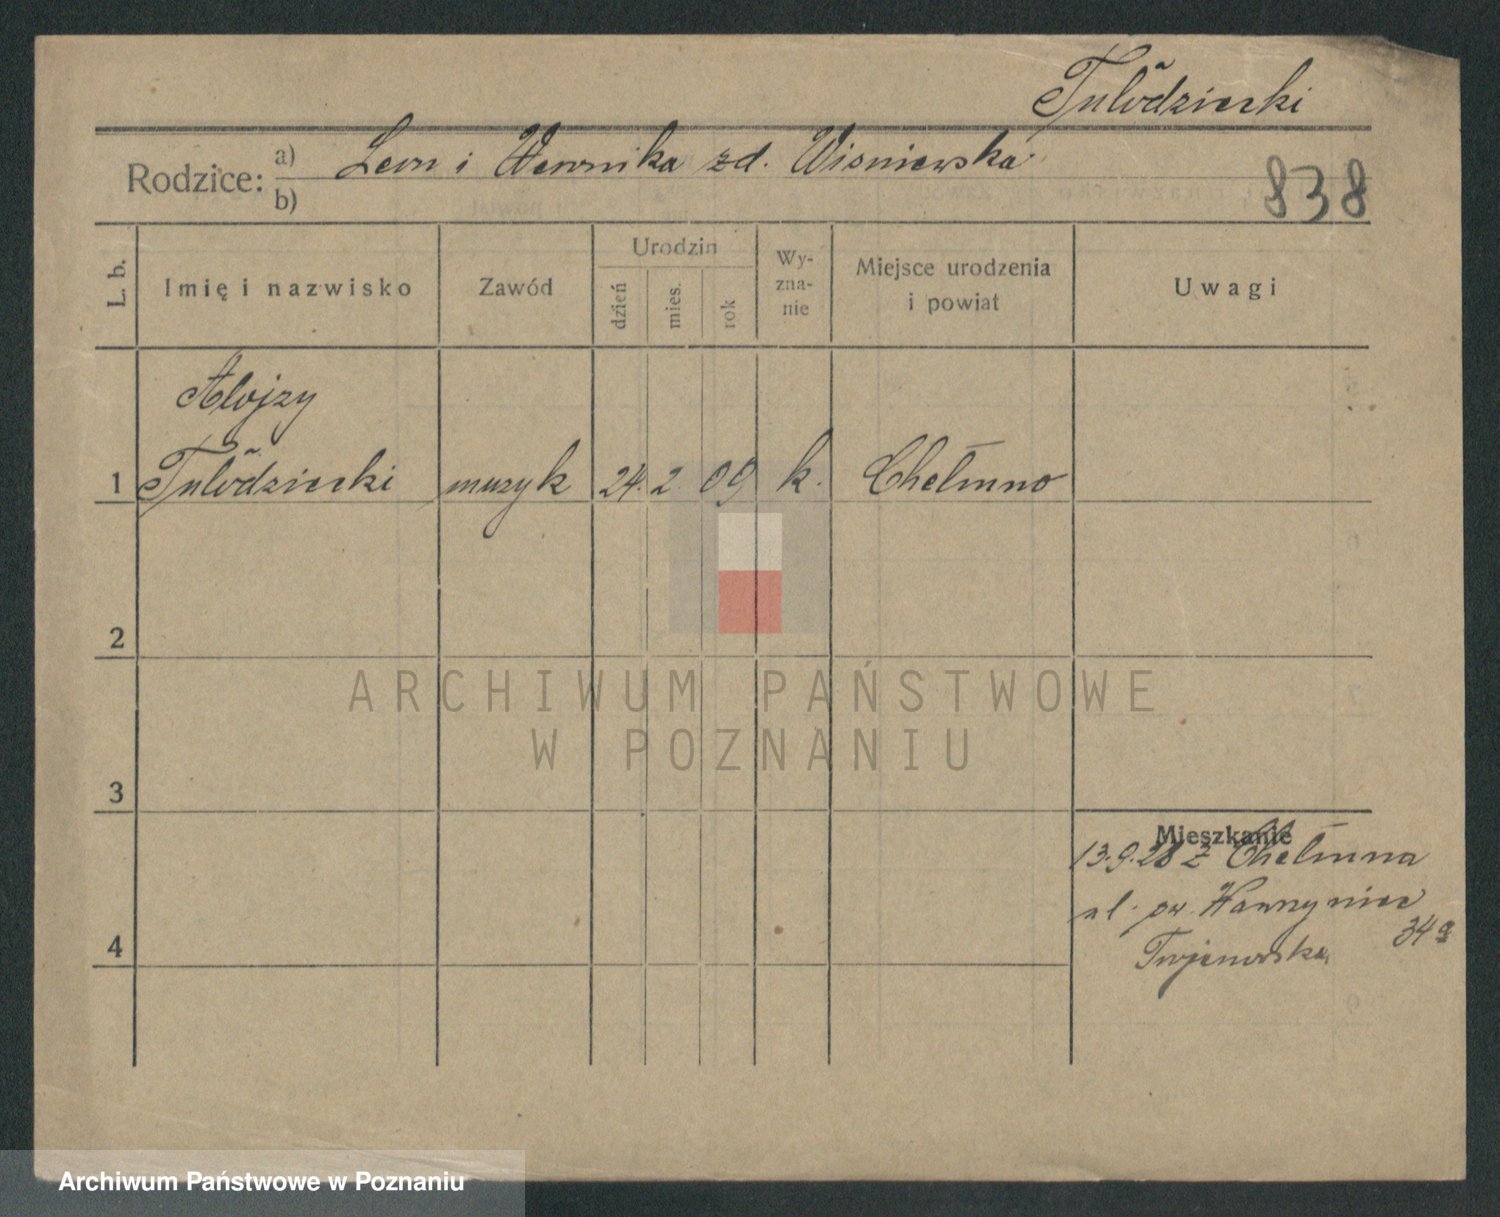 Tułodziecki
Rodzice: a) Leon i Weronika zd. Wisniewska
b)
838
L. b.
Imię i nazwisko
Zawód
Urodzin
dzień
mies.
rok
Wy-
zna-
nie
Miejsce urodzenia
i powiat
Uwagi
Alojzy
1 Tułodziecki muzyk 24. 2. 09 k. Chełmno
2
3
Mieszkanie
13.9.28 z Chełmna
34a
4
ARCHIWUM PAŃSTWOWE
W POZNANIU
Archiwum Państwowe w Poznaniu